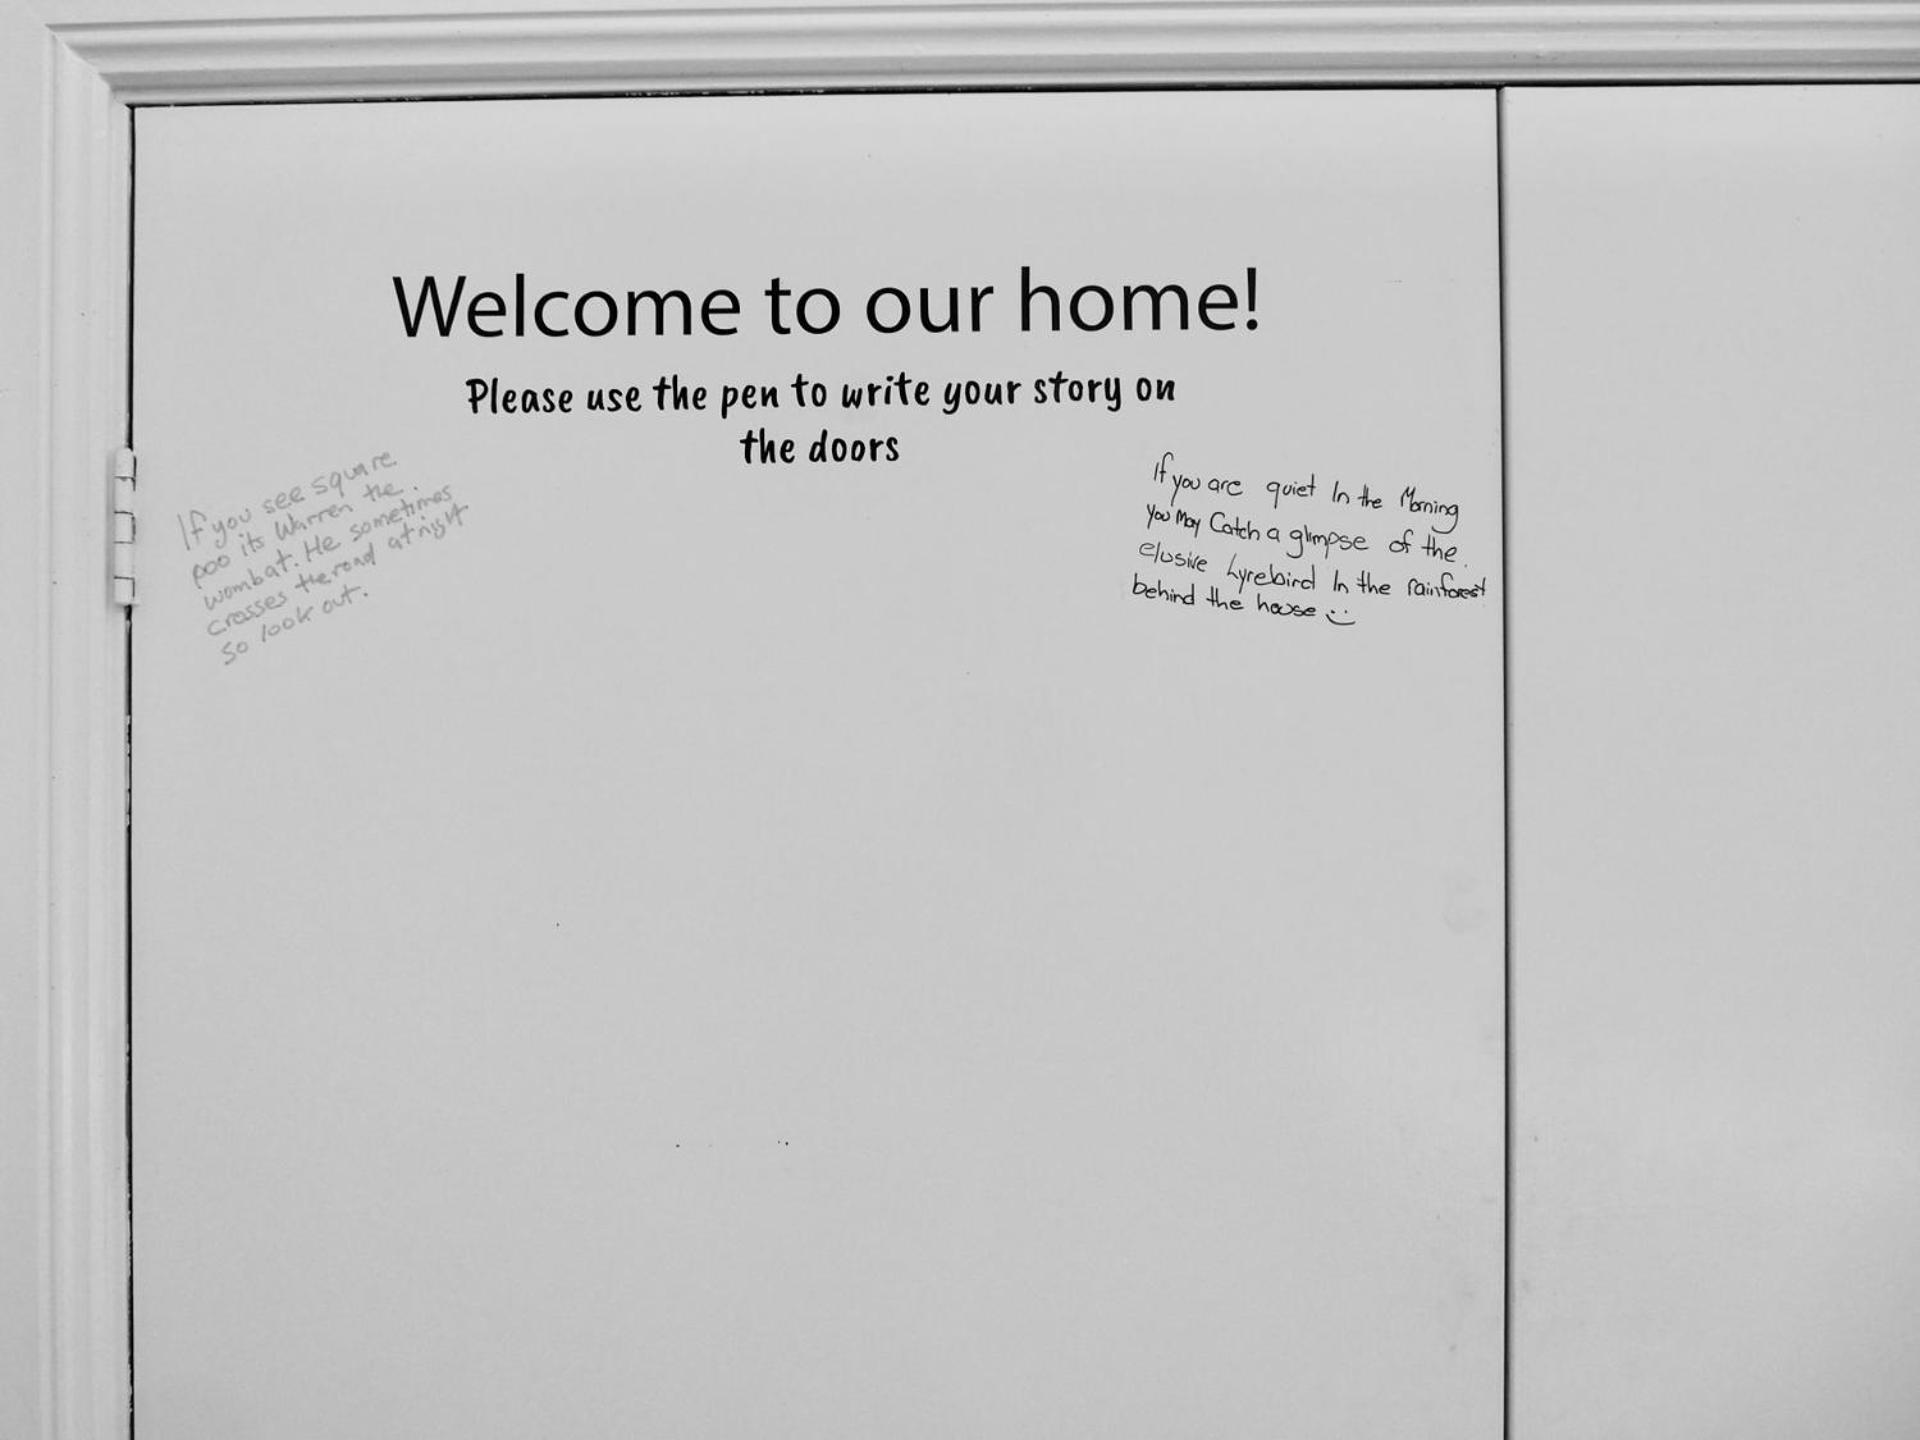 Welcome to our home!
Please use the pen to write your story on
the doors
If you see square
poo its Warren the
wombat. He sometimes
crosses the road at night
so look out.
If you are quiet In the Morning
You May Catch a glimpse of the
elusive Lyrebird In the rainforest
behind the house